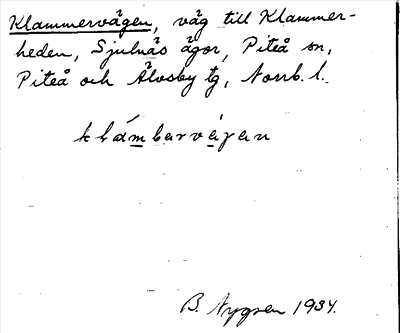 Klammervägen, väg till Klammer-
heden, Sjulnäs ägor, Piteå sn,
Piteå och Älvsby tg, Norrb. l.
klámbarvägan
B. Nygren 1934.